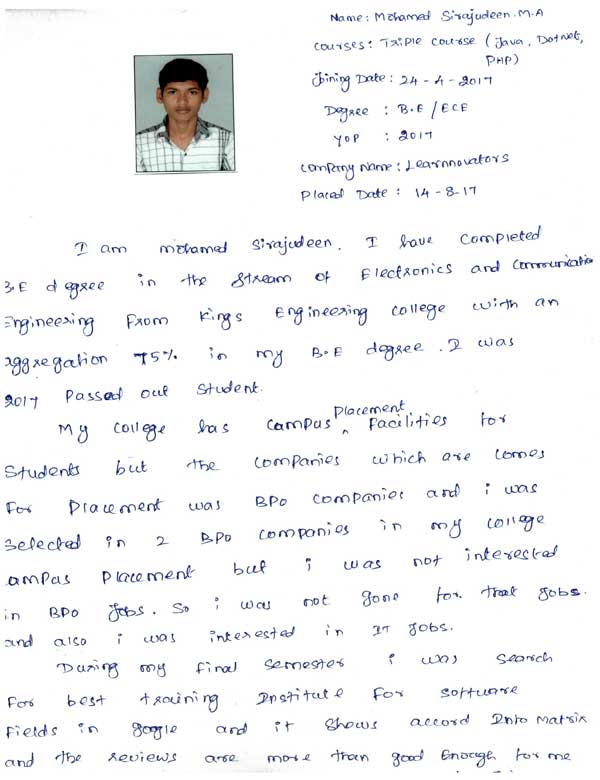 Name: Mohamed Sirajudeen.M.A
Courses: Triple Course (Java, DotNet,
PHP)
Joining Date: 24-4-2017
Degree : B.E / ECE
YOP : 2017
Company Name: Learnnovators
Placed Date : 14-8-17
I am mohamed Sirajudeen. I have completed
B.E degree in the Stream of Electronics and Communication
Engineering From Kings Engineering college with an
aggregation 75% in my B.E degree. I was
2017 Passed out Student.
My college has campus Placement facilities for
Students but the companies which are comes
For placement was BPO companies and i was
Selected in 2 BPO companies in my college
ampas Placement but i was not interested
in BPO jobs. So i was not gone for that jobs.
and also i was interested in IT jobs.
During my final semester i was search
For best training Institute for software
Fields in google and it shows accord Info Matrix
and the reviews are more than good Enough for me